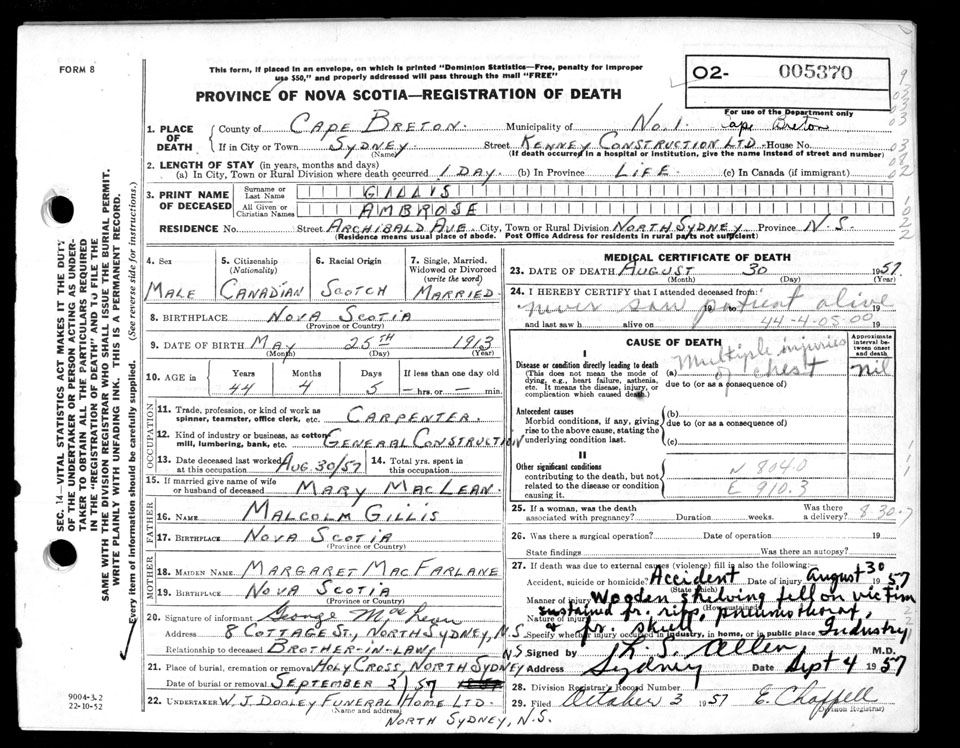 FORM 8
This form, if placed in an envelope, on which is printed "Dominion Statistics—Free, penalty for improper
use $50," and properly addressed will pass through the mail "FREE"
O2- 005370
PROVINCE OF NOVA SCOTIA—REGISTRATION OF DEATH
For use of the Department only
1. PLACE OF DEATH { County of CAPE BRETON. Municipality of No. 1. Cape Breton
If in City or Town SYDNEY. (Name) Street KENNEY CONSTRUCTION LTD. House No.
(If death occurred in a hospital or institution, give the name instead of street and number)
2. LENGTH OF STAY (in years, months and days)
(a) In City, Town or Rural Division where death occurred 1 DAY. (b) In Province LIFE. (c) In Canada (if immigrant)
3. PRINT NAME OF DECEASED { Surname or Last Name GILLIS
All Given or Christian Names AMBROSE
RESIDENCE No. Street ARCHIBALD AVE. City, Town or Rural Division NORTH SYDNEY Province N.S.
(Residence means usual place of abode. Post Office Address for residents in rural parts not sufficient)
4. Sex MALE
5. Citizenship (Nationality) CANADIAN
6. Racial Origin SCOTCH
7. Single, Married, Widowed or Divorced (write the word) MARRIED
8. BIRTHPLACE NOVA SCOTIA
(Province or Country)
9. DATE OF BIRTH MAY 25TH 1913
(Month) (Day) (Year)
10. AGE in { Years 44 Months 4 Days 5 If less than one day old — hrs. or — min.
OCCUPATION
11. Trade, profession, or kind of work as spinner, teamster, office clerk, etc. CARPENTER.
12. Kind of industry or business, as cotton mill, lumbering, bank, etc. GENERAL CONSTRUCTION
13. Date deceased last worked at this occupation AUG. 30/57 14. Total yrs. spent in this occupation
15. If married give name of wife or husband of deceased MARY MACLEAN.
FATHER
16. NAME MALCOLM GILLIS
17. BIRTHPLACE NOVA SCOTIA
(Province or Country)
MOTHER
18. MAIDEN NAME MARGARET MACFARLANE
19. BIRTHPLACE NOVA SCOTIA
(Province or Country)
20. Signature of informant George
Address 8 COTTAGE ST., NORTH SYDNEY, N.S.
Relationship to deceased BROTHER-IN-LAW
21. Place of burial, cremation or removal HOLY CROSS, NORTH SYDNEY N.S
Date of burial or removal SEPTEMBER 2/57
22. UNDERTAKER W. J. DOOLEY FUNERAL HOME LTD.
(Name and address)
NORTH SYDNEY, N.S.
MEDICAL CERTIFICATE OF DEATH
23. DATE OF DEATH AUGUST 30 1957.
(Month) (Day) (Year)
24. I HEREBY CERTIFY that I attended deceased from:
never saw patient alive
19 to 19
44-4-05-00
and last saw h alive on 19
CAUSE OF DEATH
Approximate interval between onset and death
I
Disease or condition directly leading to death
(This does not mean the mode of dying, e.g., heart failure, asthenia, etc. It means the disease, injury, or complication which caused death.)
(a) Multiple injuries of chest nil
due to (or as a consequence of)
Antecedent causes
Morbid conditions, if any, giving rise to the above cause, stating the underlying condition last.
(b)
due to (or as a consequence of)
(c)
II
Other significant conditions
contributing to the death, but not related to the disease or condition causing it.
N 804.0
E 910.3
25. If a woman, was the death associated with pregnancy? Duration weeks. Was there a delivery? 8-30-7
26. Was there a surgical operation? Date of operation 19
State findings Was there an autopsy?
27. If death was due to external causes (violence) fill in also the following:
Accident, suicide or homicide? Accident Date of injury August 30 1957
(State which)
Manner of injury Wooden shelving fell on victim
(How sustained)
Nature of injury sustained fr. ribs, pneumothorax,
& fr. skull.
Specify where injury occurred in industry, in home, or in public place Industry
Signed by Allen M.D.
Address Sydney Date Sept 4 1957
28. Division Registrar's Record Number
29. Filed October 3 1957 E. Chappell
(Division Registrar)
SEC. 14—VITAL STATISTICS ACT MAKES IT THE DUTY
OF THE UNDERTAKER OR PERSON ACTING AS UNDER-
TAKER TO OBTAIN ALL THE PARTICULARS REQUIRED
IN THE "REGISTRATION OF DEATH" AND TO FILE THE
SAME WITH THE DIVISION REGISTRAR WHO SHALL ISSUE THE BURIAL PERMIT.
WRITE PLAINLY WITH UNFADING INK. THIS IS A PERMANENT RECORD.
Every item of information should be carefully supplied. (See reverse side for instructions.)
9004-3.2
22-10-52